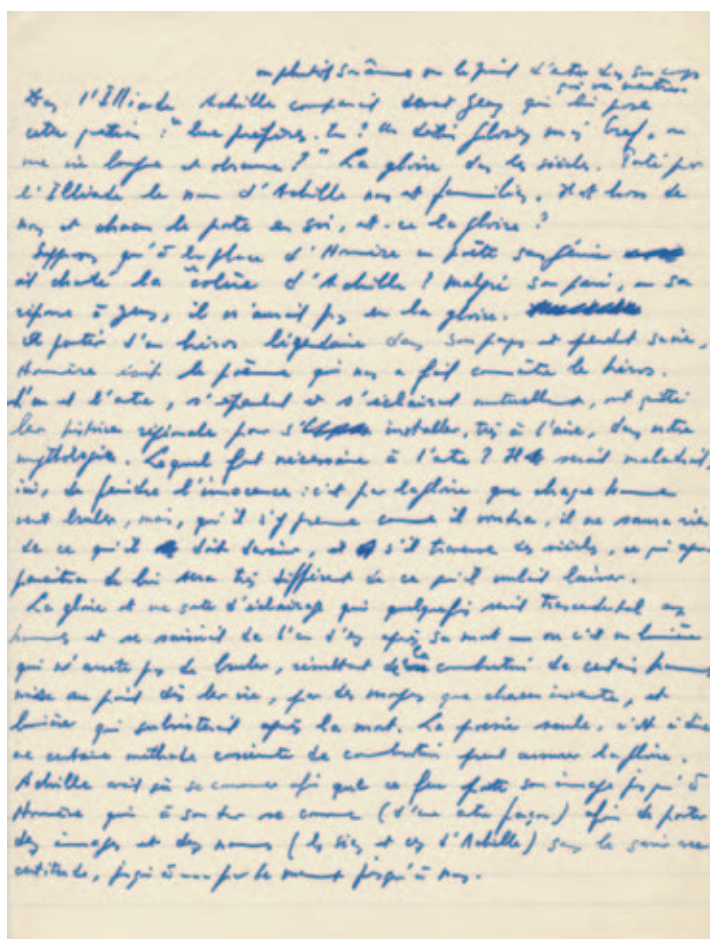 ou plutôt son âme ou le point d'être de son corps
qui va
Dans l'Illiade Achille comparait devant Zeus qui lui pose
cette question : "Que préfères-tu ? Un destin glorieux mais bref, ou
une vie longue et obscure ?" La gloire dans les siècles. Porté par
l'Illiade le nom d'Achille nous est familier. Il est hors de
nous et chacun le porte en soi, est-ce la gloire ?
Supposons qu'à la place d'Homère un poète sans génie
ait chanté la "colère d'Achille ? Malgré son pari, ou sa
réponse à Zeus, il n'aurait pas eu la gloire.
A partir d'un héros légendaire dans son pays et pendant sa vie,
Homère écrit le poème qui nous a fait connaître le héros.
L'un et l'autre, s'épaulent et s'éclairent mutuellement, ont quitté
leur histoire régionale pour s' installer, très à l'aise, dans notre
mythologie. Lequel fut nécessaire à l'autre ? Il serait maladroit,
ici, de feindre l'innocence : c'est par la gloire que chaque homme
veut briller, mais, qu'il s'y prenne comme il voudra, il ne saura rien
de ce qu'il doit savoir, et s'il traverse les siècles, ce qui
de lui sera très différent de ce qu'il voulait laisser.
La gloire est une sorte d'éclairage qui quelquefois serait transcendental aux
hommes et se saisirait de l'un d'eux après sa mort — ou c'est une lumière
qui n'arrête pas de brûler, résultant de la combustion de certains hommes
mise au point dès leur vie, par des moyens que chacun invente, et
lumière qui subsisterait après la mort. La poésie seule, c'est à dire
une certaine méthode consciente de combustion peut assurer la gloire.
Achille avait su se consumer afin que ce feu porte son image jusqu'à
Homère qui à son tour se consume (d'une autre façon) afin de porter
des images et des noms (les siens et ceux d'Achille) sans le savoir avec
certitude, jusqu'à jusqu'à nous.